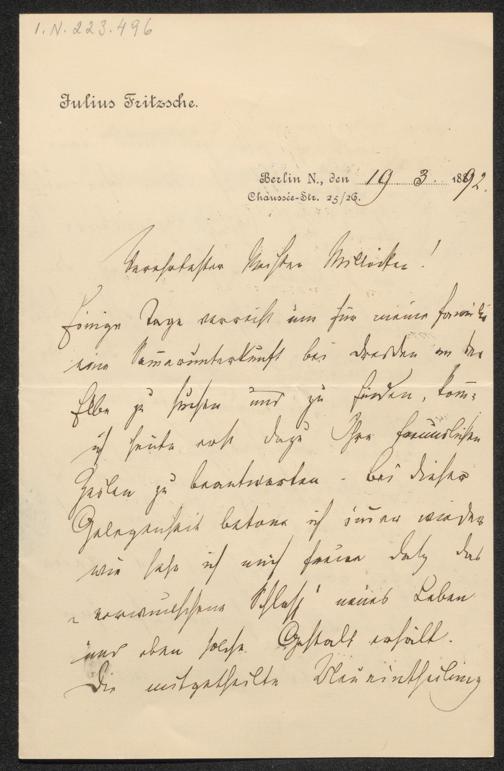 I.N. 223.496
Julius Fritzsche.
Berlin N., den 19 3. 1892.
Chaussée-Str. 25/26.
Verehrtester Meister Millöcker!
Einige Tage verreist um für meine Familie
eine Sommerunterkunft bei Dresden an der
Elbe zu suchen und zu finden, kom-
ich heute erst dazu Ihre freundlichen
Zeilen zu beantworten. Bei dieser
Gelegenheit betone ich immer wieder
wie sehr ich mich freue daß das
"verwunschene Schloß" neues Leben
und eben solche Gestalt erhält.
Die mitgetheilte Neueintheilung